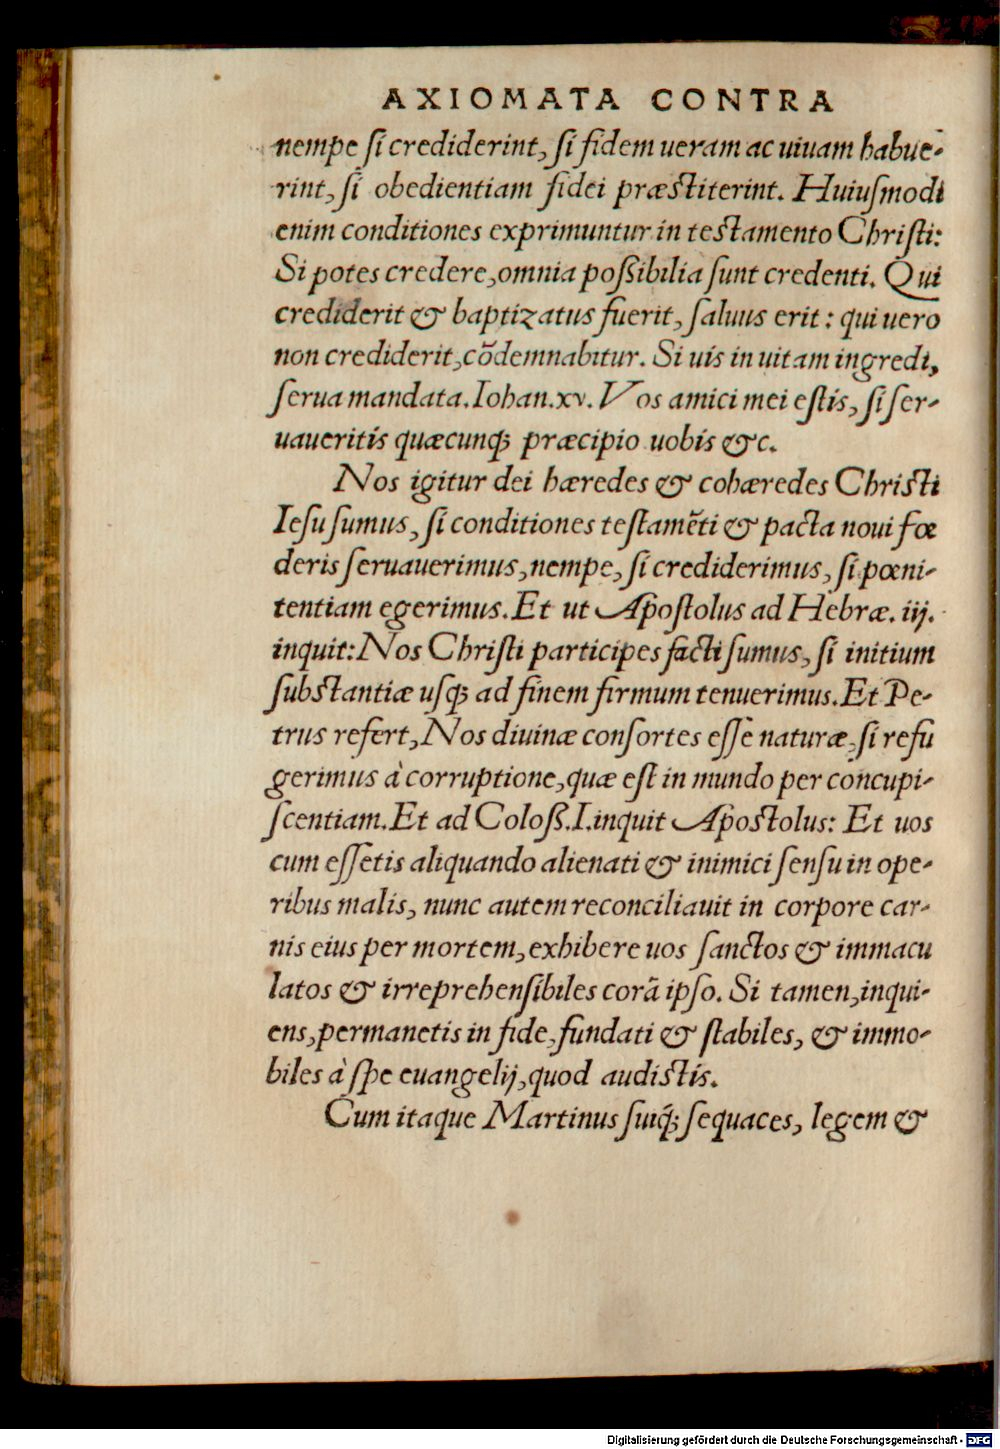 AXIOMATA CONTRA
nempe si crediderint, si fidem ueram ac uiuam habue-
rint, si obedientiam fidei præstiterint. Huiusmodi
enim conditiones exprimuntur in testamento Christi:
Si potes credere, omnia poßibilia sunt credenti. Qui
crediderit & baptizatus fuerit, saluus erit: qui uero
non crediderit, cōdemnabitur. Si uis in uitam ingredi,
serua mandata. Iohan. xv. Vos amici mei estis, si ser-
uaueritis quæcunq; præcipio uobis &c.
Nos igitur dei hæredes & cohæredes Christi
Iesu sumus, si conditiones testamēti & pacta noui fœ
deris seruauerimus, nempe, si crediderimus, si pœni-
tentiam egerimus. Et ut Apostolus ad Hebræ. iij.
inquit: Nos Christi participes facti sumus, si initium
substantiæ usq; ad finem firmum tenuerimus. Et Pe-
trus refert, Nos diuinæ consortes esse naturæ, si refu
gerimus à corruptione, quæ est in mundo per concupi-
scentiam. Et ad Coloß. I. inquit Apostolus: Et uos
cum essetis aliquando alienati & inimici sensu in ope-
ribus malis, nunc autem reconciliauit in corpore car-
nis eius per mortem, exhibere uos sanctos & immacu
latos & irreprehensibiles corā ipso. Si tamen, inqui-
ens, permanetis in fide, fundati & stabiles, & immo-
biles à spe euangelij, quod audistis.
Cum itaque Martinus suiq; sequaces, legem &
Digitalisierung gefördert durch die Deutsche Forschungsgemeinschaft - DFG